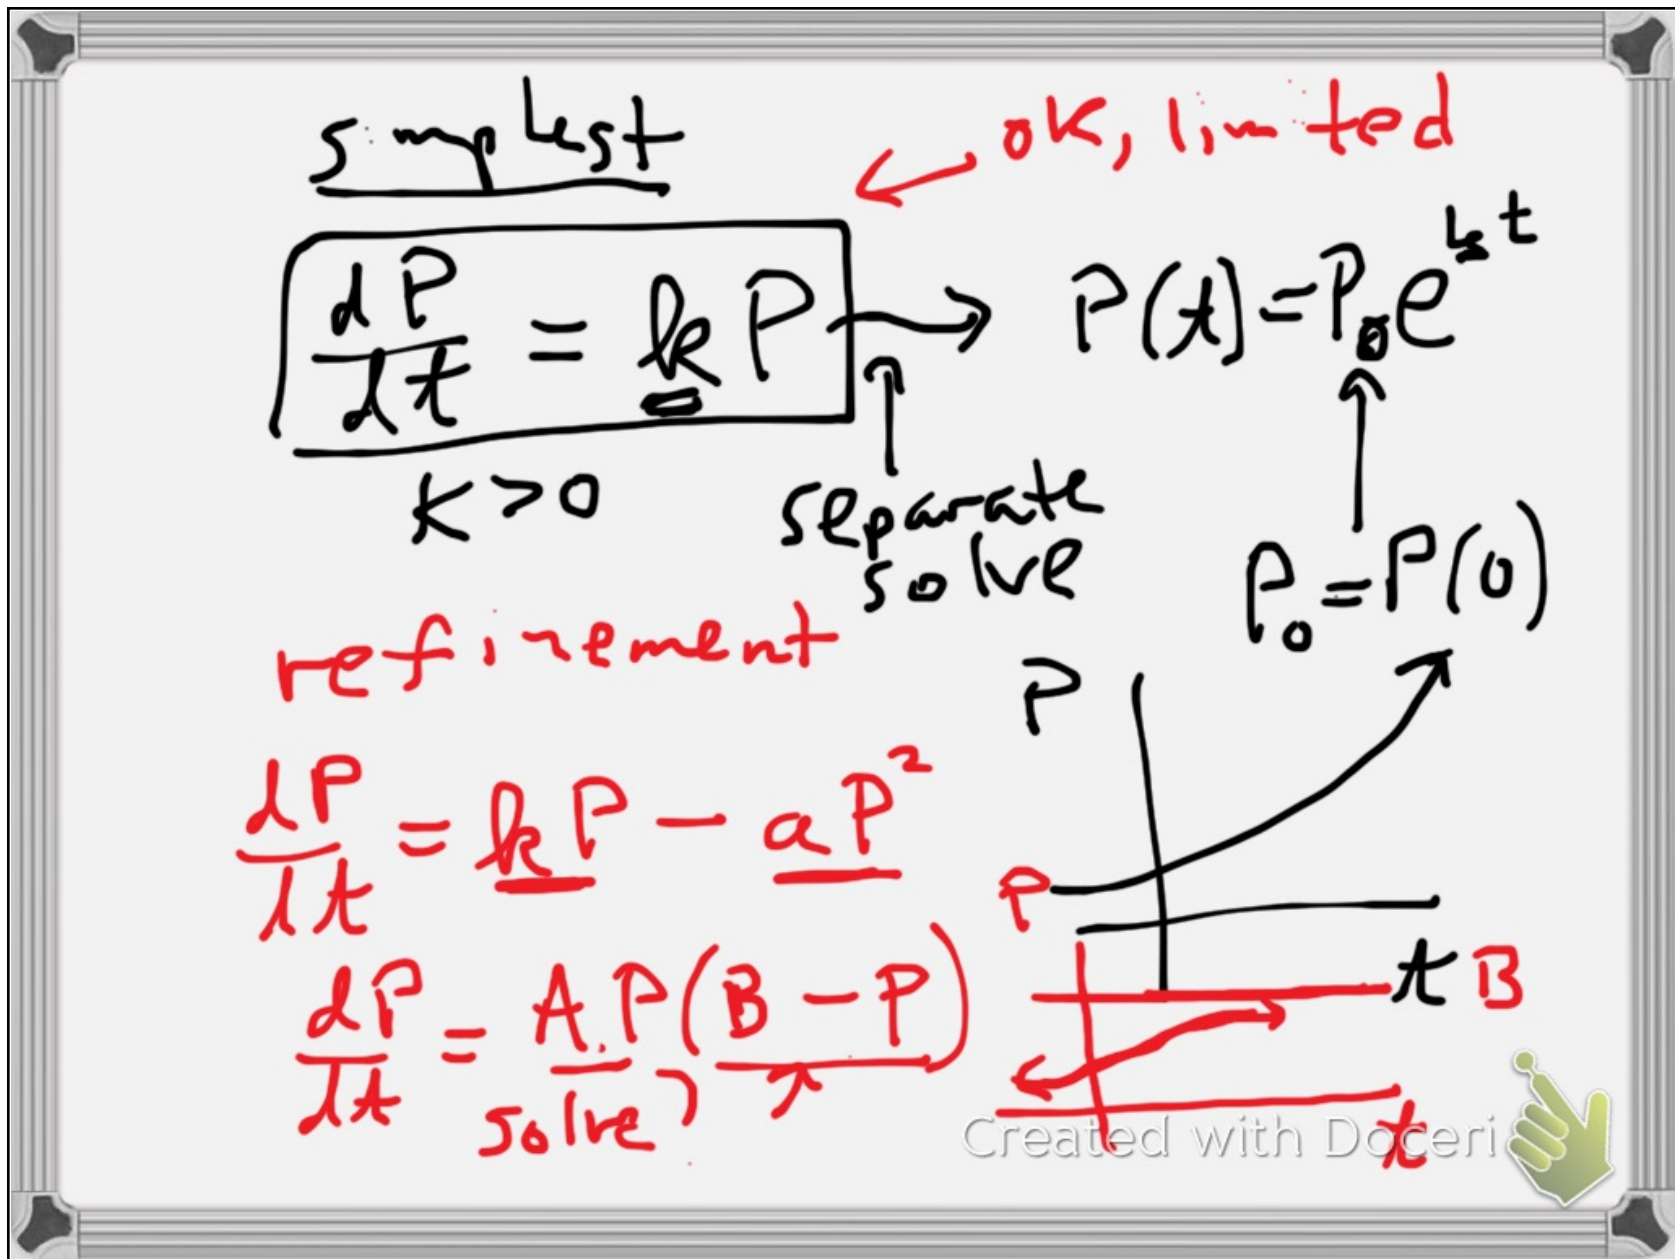 simplest
ok, limited
dP/dt = kP → P(t) = P₀e^kt
k > 0
separate
solve
P₀ = P(0)
refinement
P
t
dP/dt = kP − aP²
dP/dt = A.P(B − P)
solve
P
B
t
Created with Doceri